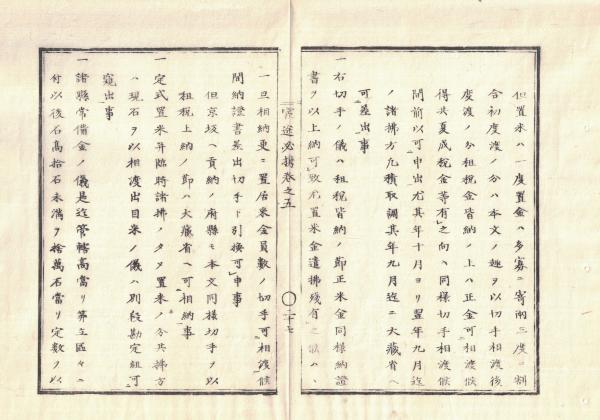 但置米ハ一度置金ハ多寡ニ寄兩三度ニ割
合初度渡ノ分ハ本文ノ趣ヲ以切手相渡後
度渡ノ分租税金皆納ノ上ハ正金可相渡候
得共夏成税金等有之向ハ同様切手相渡候
間前以可申出尤其年十月ヨリ翌年九月迄
ノ諸拂方凡積取調其年九月迄ニ大藏省ヘ
可差出事
一右切手ノ儀ハ租税皆納ノ節正米金同様納證
書ヲ以上納可致尤置米金遣拂殘有之候ハヽ
一旦相納更ニ置居米金員數ノ切手可相渡候
間納證書差出切手ト引換可申事
但京坂ヘ貢納ノ府縣モ本文同様切手ヲ以
租税上納ノ節ハ大藏省ヘ可相納事
一定式置米并臨時諸拂ノタメ置米ノ分共拂方
ハ現石ヲ以相渡出目米ノ儀ハ別段勘定組可
窺出事
一諸縣常備金ノ儀是迄管轄高當リ第立區々ニ
付以後石高拾石未滿ヲ捨萬石當リ定數ヲ以
必携卷之五
二十七